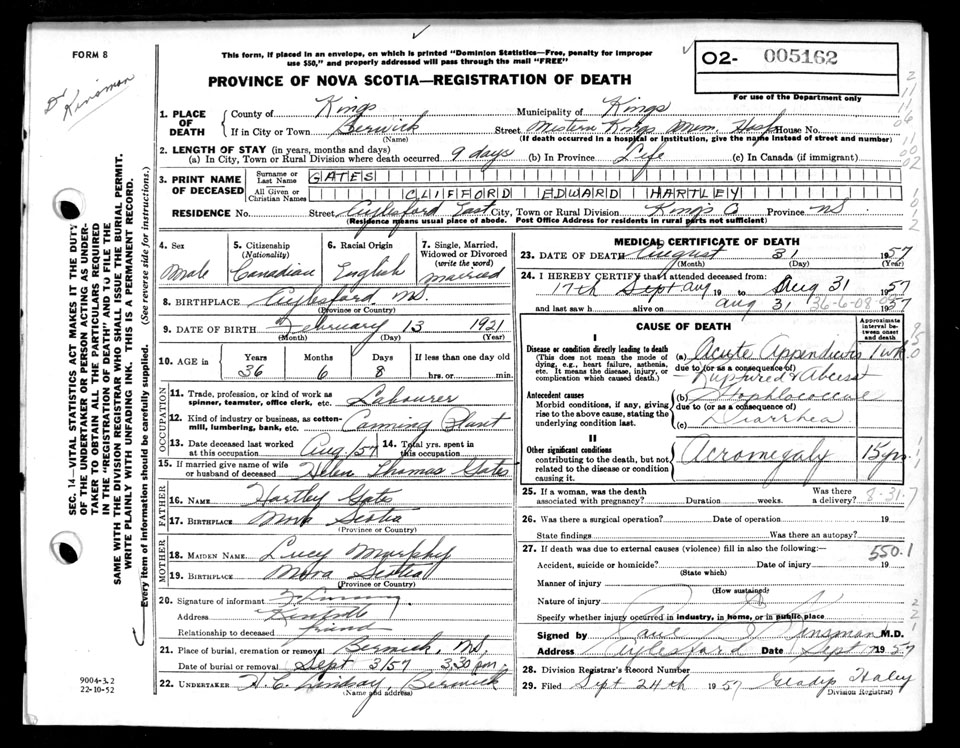 FORM 8
This form, if placed in an envelope, on which is printed "Dominion Statistics—Free, penalty for improper
use $50," and properly addressed will pass through the mail "FREE"
PROVINCE OF NOVA SCOTIA—REGISTRATION OF DEATH
O2- 005162
For use of the Department only
Dr Kinsman
SEC. 14—VITAL STATISTICS ACT MAKES IT THE DUTY
OF THE UNDERTAKER OR PERSON ACTING AS UNDER-
TAKER TO OBTAIN ALL THE PARTICULARS REQUIRED
IN THE "REGISTRATION OF DEATH" AND TO FILE THE
SAME WITH THE DIVISION REGISTRAR WHO SHALL ISSUE THE BURIAL PERMIT.
WRITE PLAINLY WITH UNFADING INK. THIS IS A PERMANENT RECORD.
Every item of information should be carefully supplied. (See reverse side for instructions.)
1. PLACE OF DEATH County of Kings Municipality of Kings
If in City or Town Berwick Street Western Kings Mem. Hosp House No.
(Name) (If death occurred in a hospital or institution, give the name instead of street and number)
2. LENGTH OF STAY (in years, months and days)
(a) In City, Town or Rural Division where death occurred 9 days (b) In Province Life (c) In Canada (if immigrant)
3. PRINT NAME OF DECEASED Surname or Last Name GATES
All Given or Christian Names CLIFFORD EDWARD HARTLEY
RESIDENCE No. Street Aylesford East City, Town or Rural Division Kings Co Province NS
(Residence means usual place of abode. Post Office Address for residents in rural parts not sufficient)
4. Sex Male
5. Citizenship (Nationality) Canadian
6. Racial Origin English
7. Single, Married, Widowed or Divorced (write the word) married
8. BIRTHPLACE Aylesford NS.
(Province or Country)
9. DATE OF BIRTH February 13 1921
(Month) (Day) (Year)
10. AGE in Years 36 Months 6 Days 8 If less than one day old hrs. or min.
OCCUPATION
11. Trade, profession, or kind of work as spinner, teamster, office clerk, etc. Labourer
12. Kind of industry or business, as cotton-mill, lumbering, bank, etc. Canning Plant
13. Date deceased last worked at this occupation Aug/57 14. Total yrs. spent in this occupation
15. If married give name of wife or husband of deceased Helen Thomas Gates
FATHER
16. NAME Hartley Gates
17. BIRTHPLACE Nova Scotia
(Province or Country)
MOTHER
18. MAIDEN NAME Lucy Murphy
19. BIRTHPLACE Nova Scotia
(Province or Country)
20. Signature of informant
Address
Relationship to deceased friend
21. Place of burial, cremation or removal Berwick, NS.
Date of burial or removal Sept 3/57 3.30 pm.
22. UNDERTAKER H. C. Lindsay, Berwick
(Name and address)
9004-3.2
22-10-52
MEDICAL CERTIFICATE OF DEATH
23. DATE OF DEATH August 31 1957
(Month) (Day) (Year)
24. I HEREBY CERTIFY that I attended deceased from:
17th Sept Aug 19 to Aug 31 1957
and last saw h alive on aug 31 1957
CAUSE OF DEATH
Approximate interval between onset and death
I
Disease or condition directly leading to death
(This does not mean the mode of dying, e.g., heart failure, asthenia, etc. It means the disease, injury, or complication which caused death.)
(a) Acute Appendicitis 1 wk.
due to (or as a consequence of)
Ruptured & Abcess
Antecedent causes
Morbid conditions, if any, giving rise to the above cause, stating the underlying condition last.
(b)
due to (or as a consequence of)
(c) Diarrhea
II
Other significant conditions
contributing to the death, but not related to the disease or condition causing it.
Acromegaly 15 yrs.
25. If a woman, was the death associated with pregnancy? Duration weeks. Was there a delivery? 8-31-7
26. Was there a surgical operation? Date of operation 19
State findings Was there an autopsy?
27. If death was due to external causes (violence) fill in also the following:— 550.1
Accident, suicide or homicide? Date of injury 19
(State which)
Manner of injury
(How sustained)
Nature of injury
Specify whether injury occurred in industry, in home, or in public place
Signed by Paul Kinsman M.D.
Address Aylesford Date Sept 7 1957
28. Division Registrar's Record Number
29. Filed Sept 24th 1957 Gladys Haley
(Division Registrar)